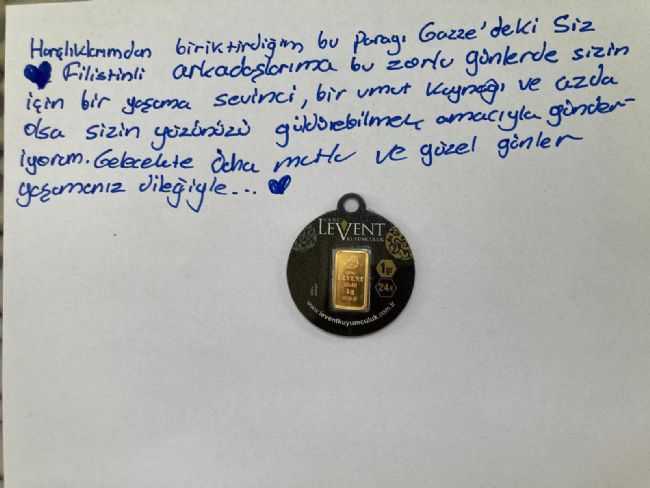 Harçlıklarımdan biriktirdiğim bu parayı Gazze'deki Siz
Filistinli arkadaşlarıma bu zorlu günlerde sizin
için bir yaşama sevinci, bir umut kaynağı ve azda
olsa sizin yüzünüzü güldürebilmek amacıyla gönder-
iyorum. Gelecekte daha mutlu ve güzel günler
yaşamanız dileğiyle...
LEVENT
KUYUMCULUK
1gr
24k
LEVENT
Gold
1g
www.leventkuyumculuk.com.tr